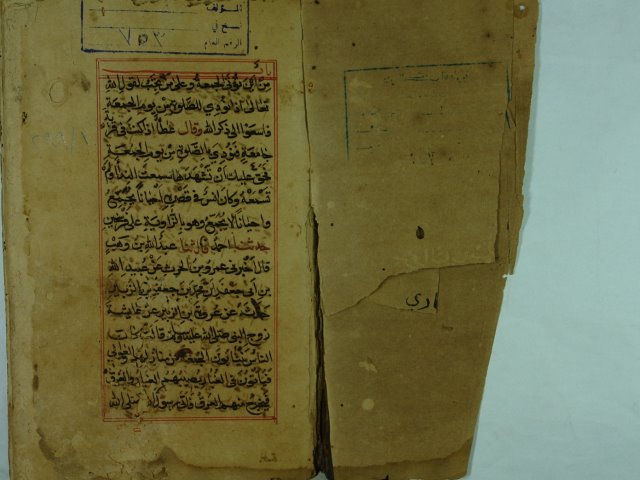 المؤلف
نسخ في
الرقم العام ٧٥٢
باب
من اين تؤتى الجمعة وعلى من تجب لقول الله
تعالى اذا نودي للصلوة من يوم الجمعة
فاسعوا الى ذكر الله وقال عطأ اذا كنت في قرية
جامعة فنودي بالصلوة من يوم الجمعة
فحق عليك ان تشهدها سمعت الندأ او لم
تسمعه وكان انس في قصره احيانا يجمع
واحيانا لا يجمع وهو بالزاوية على فرسخين
حدثنا احمد قال ثنا عبد الله بن وهب
قال اخبرني عمرو بن الحرث عن عبيد الله
بن ابي جعفر ان محمد بن جعفر بن الزبير
حدثه عن عروة بن الزبير عن عايشة
زوج النبي صلى الله عليه وسلم قالت كان
الناس ينتابون الجمعة من منازلهم والعوالي
فيأتون في الغبار يصيبهم الغبار والعرق
فيخرج منهم العرق فاتى رسول الله صلى الله
ارى